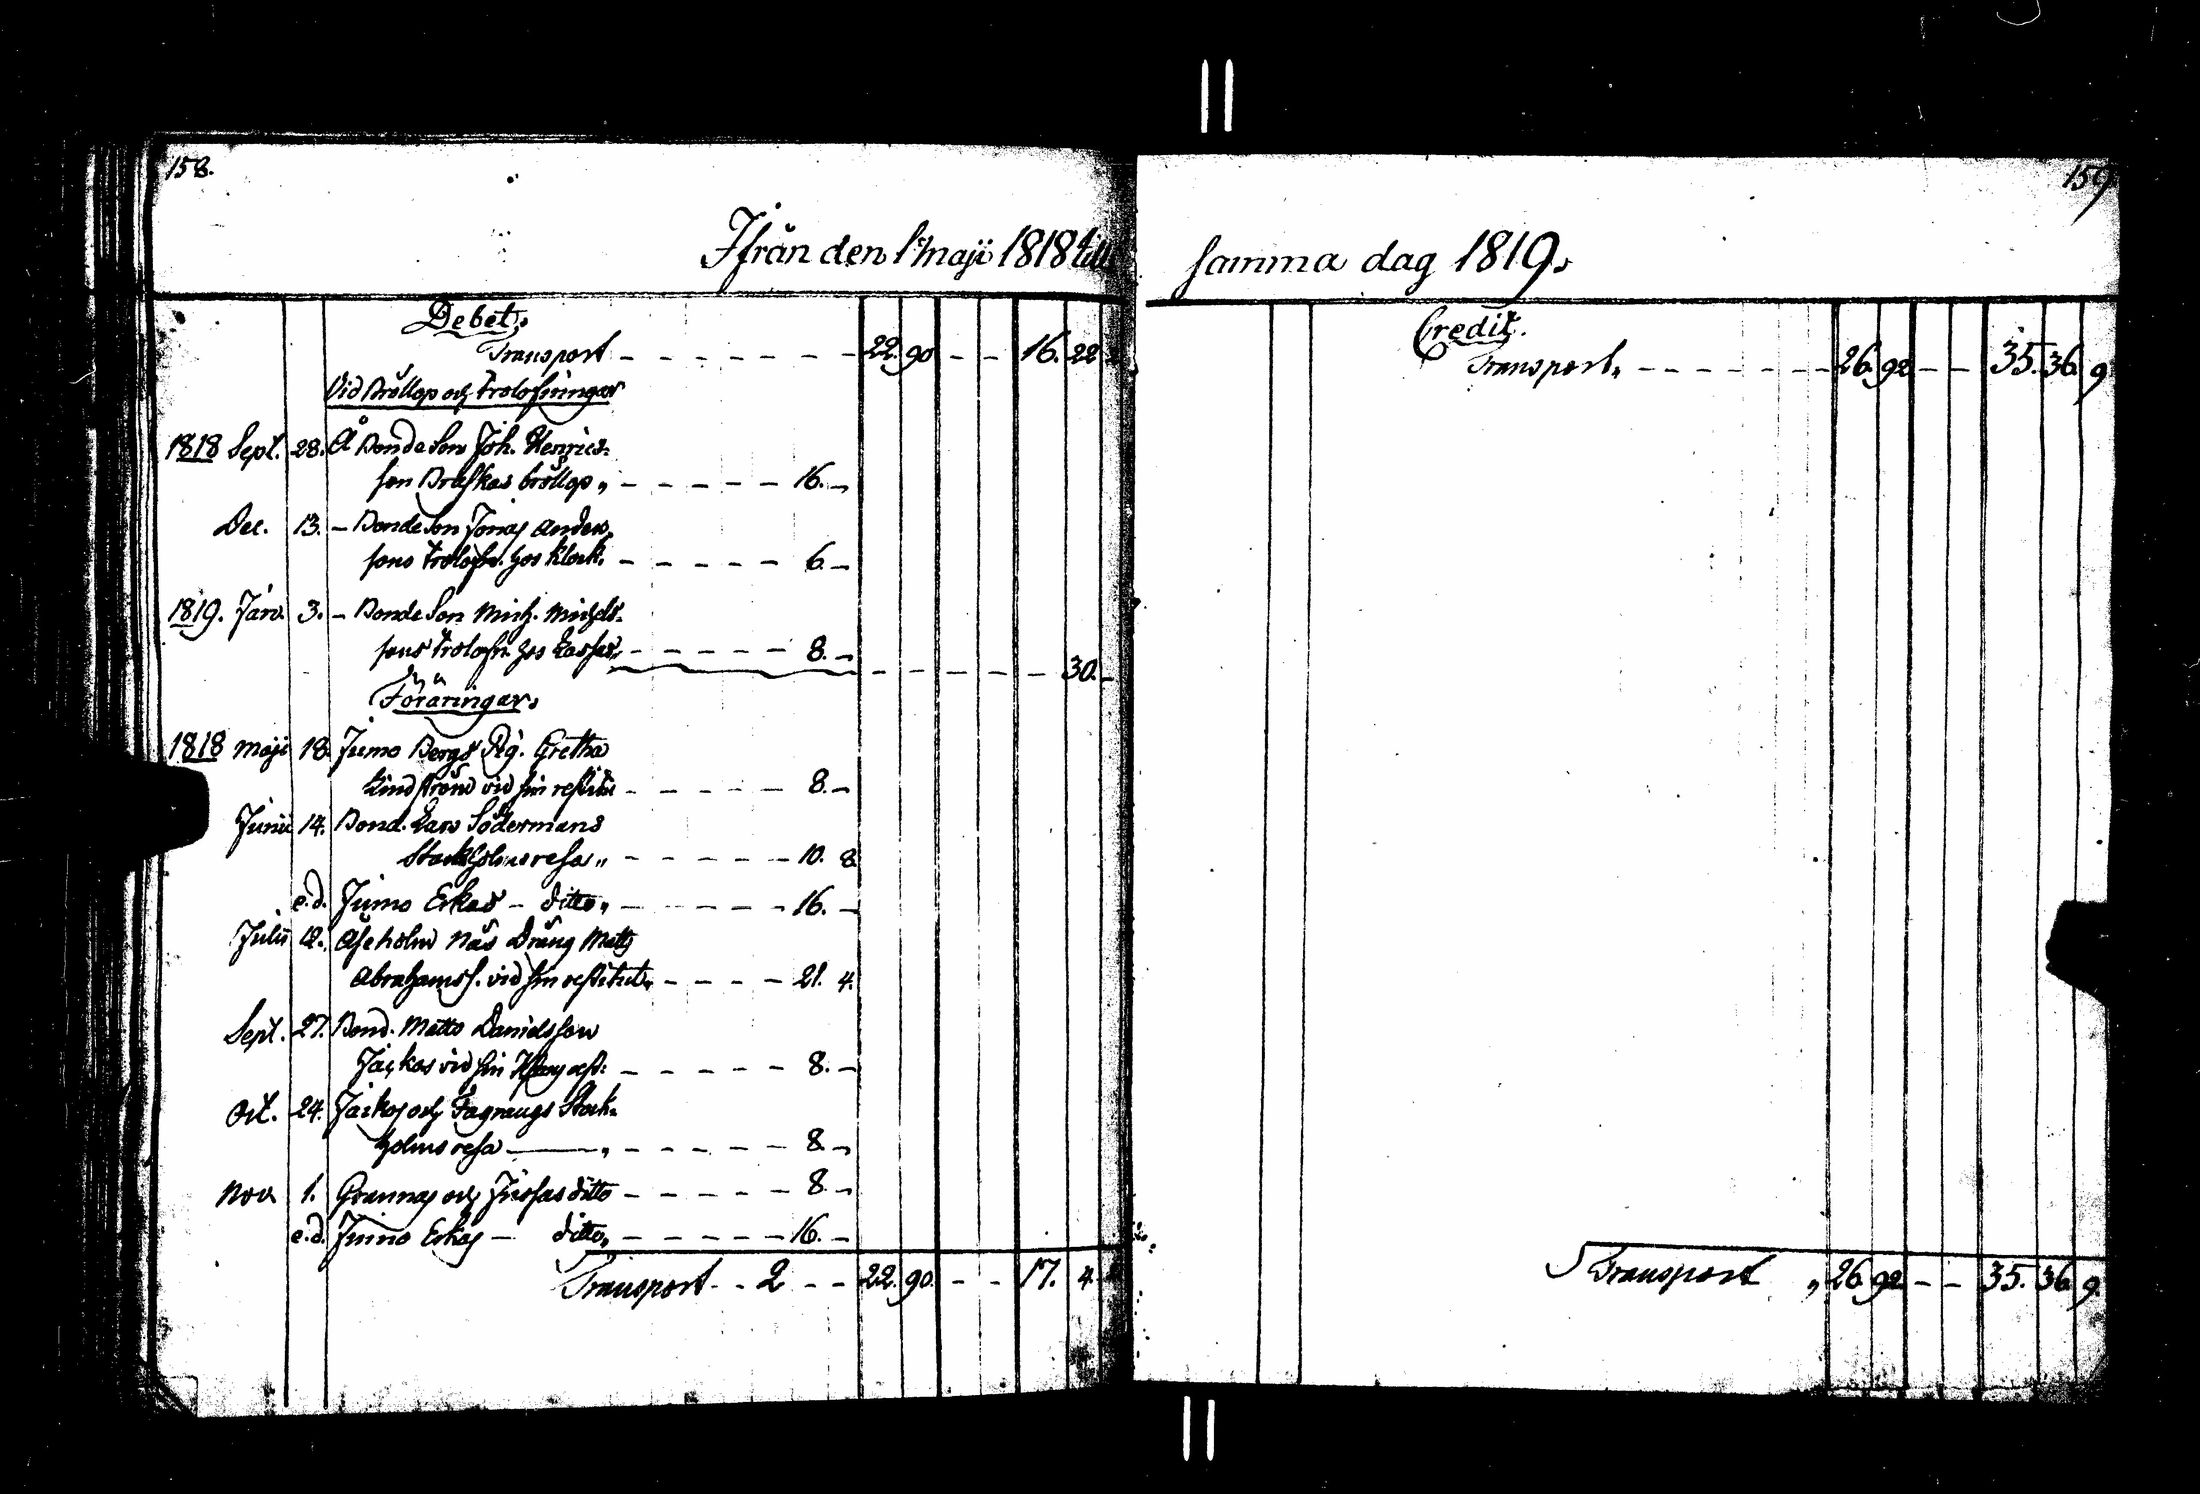 158.
Ifrån den 1 Maji 1818 till
Debet.
Transport - - - - - - - 22. 90 - - 16. 22
Vid Bröllop och Trolofningar
1818 Sept. 28. Å Bonde Son Joh. Henrics-
son Braskas bröllop „ - - - - - 16. -
Dec. 13. - Bonde Son Jonas Anders
sons Trolofn. hos Klock. - - - - - 6. -
1819. Jan. 3. - Bonde Son Mich. Michels-
sons Trolofn. hos - - - - - 8. -
- - - - - 30. -
Föräringar.
1818 Maji 18. Jumo Bergs Pig. Gretha
Lindström vid sin - - - - - 8. -
Junii 14. Bond. Lars Södermans
Stockholms resa „ - - - - - 10. 8.
e.d. Jumo Erkas - ditto „ - - - - - 16. -
Julii 12. Näs Dräng Matts
Abrahamss. vid sin restitut. - - - - 21. 4.
Sept. 27. Bond. Matts Danielsson
Jäckas vid sin - - - - - 8. -
Oct. 24. och Fagnäugs Stock-
holms resa „ - - - - - 8. -
Nov. 1. Grannas och Jussas ditto - - - - - 8. -
e.d. Jumo Erkas - ditto „ - - - - - 16. -
Transport - - 2 - - 22. 90. - - 17. 4.
159
samma dag 1819.
Credit.
Transport. - - - - - - 26. 92 - - 35. 36. 9
Transport „ 26. 92 - - 35. 36. 9.